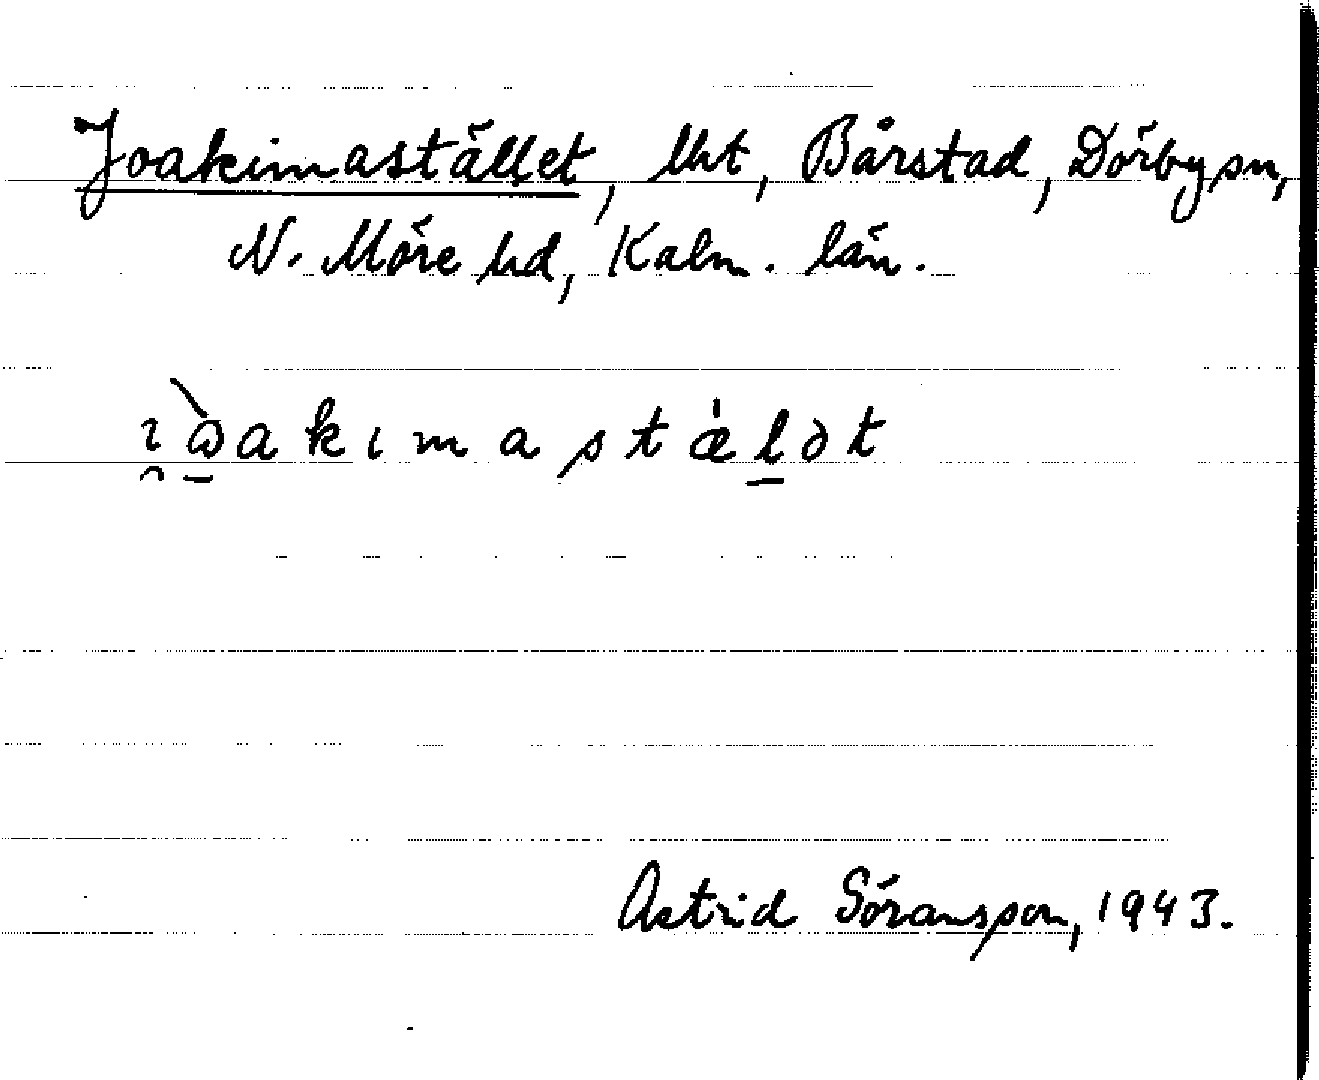 Joakimastället, lht, Bårstad, Dörbysn,
N. Möre hd, Kalm. län.
Astrid Göransson, 1943.